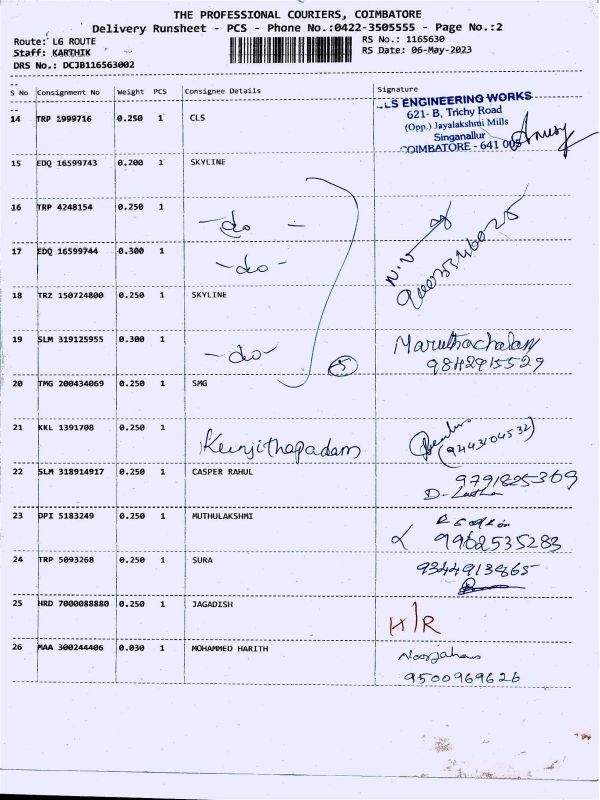 THE PROFESSIONAL COURIERS, COIMBATORE
Delivery Runsheet - PCS - Phone No.:0422-3505555 - Page No.:2
Route: LG ROUTE
RS No.: 1165630
Staff: KARTHIK
RS Date: 06-May-2023
DRS No.: DCJB116563002
S No Consignment No Weight PCS Consignee Details Signature
14 TRP 1999716 0.250 1 CLS
LS ENGINEERING WORKS
621- B, Trichy Road
(Opp.) Jayalakshmi Mills
Singanallur
COIMBATORE - 641 005
15 EDQ 16599743 0.200 1 SKYLINE
16 TRP 4248154 0.250 1
-do-
17 EDQ 16599744 0.300 1
-do-
18 TRZ 150724800 0.250 1 SKYLINE
19 SLM 319125955 0.300 1 Maruthachalam
-do- 5 9842915529
20 TMG 200434069 0.250 1 SMG
21 KKL 1391708 0.250 1
Kunjithapadam (9443104532)
22 SLM 318914917 0.250 1 CASPER RAHUL 9791825369
23 DPI 5183249 0.250 1 MUTHULAKSHMI
9962535283
24 TRP 5093268 0.250 1 SURA 9344913865
25 HRD 7000088880 0.250 1 JAGADISH
H/R
26 MAA 300244406 0.030 1 MOHAMMED HARITH Noorjahan
9500969626